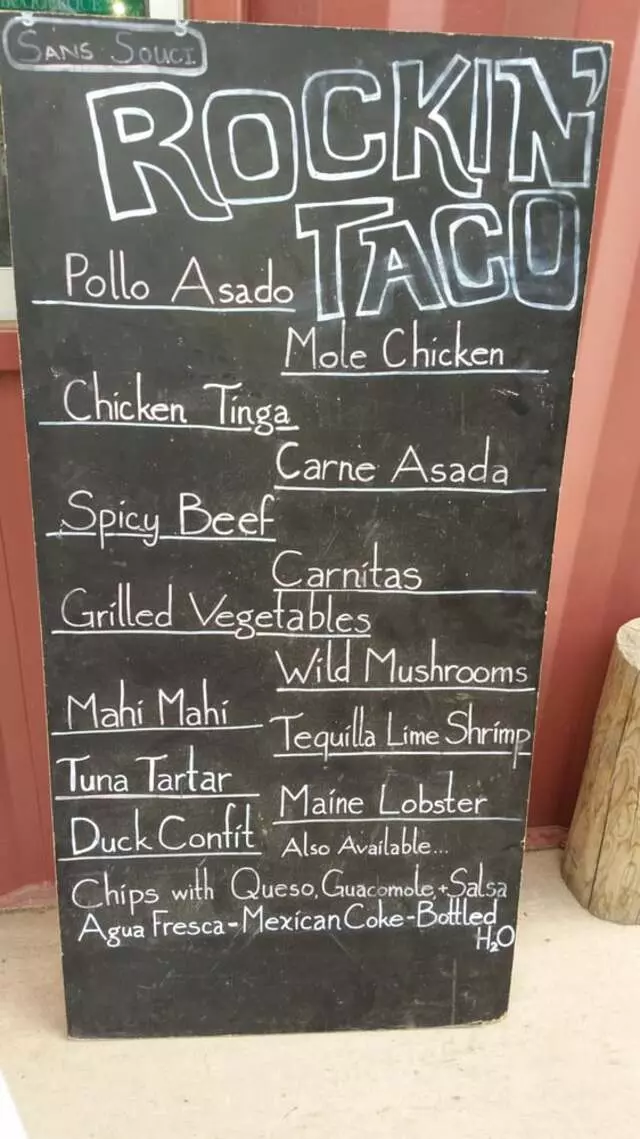 SANS SOUCI
ROCKIN'
TACO
Pollo Asado
Mole Chicken
Chicken Tinga
Carne Asada
Spicy Beef
Carnitas
Grilled Vegetables
Wild Mushrooms
Mahi Mahi
Tequilla Lime Shrimp
Tuna Tartar
Maine Lobster
Duck Confit
Also Available...
Chips with Queso, Guacomole, + Salsa
Agua Fresca - Mexican Coke - Bottled
H₂O